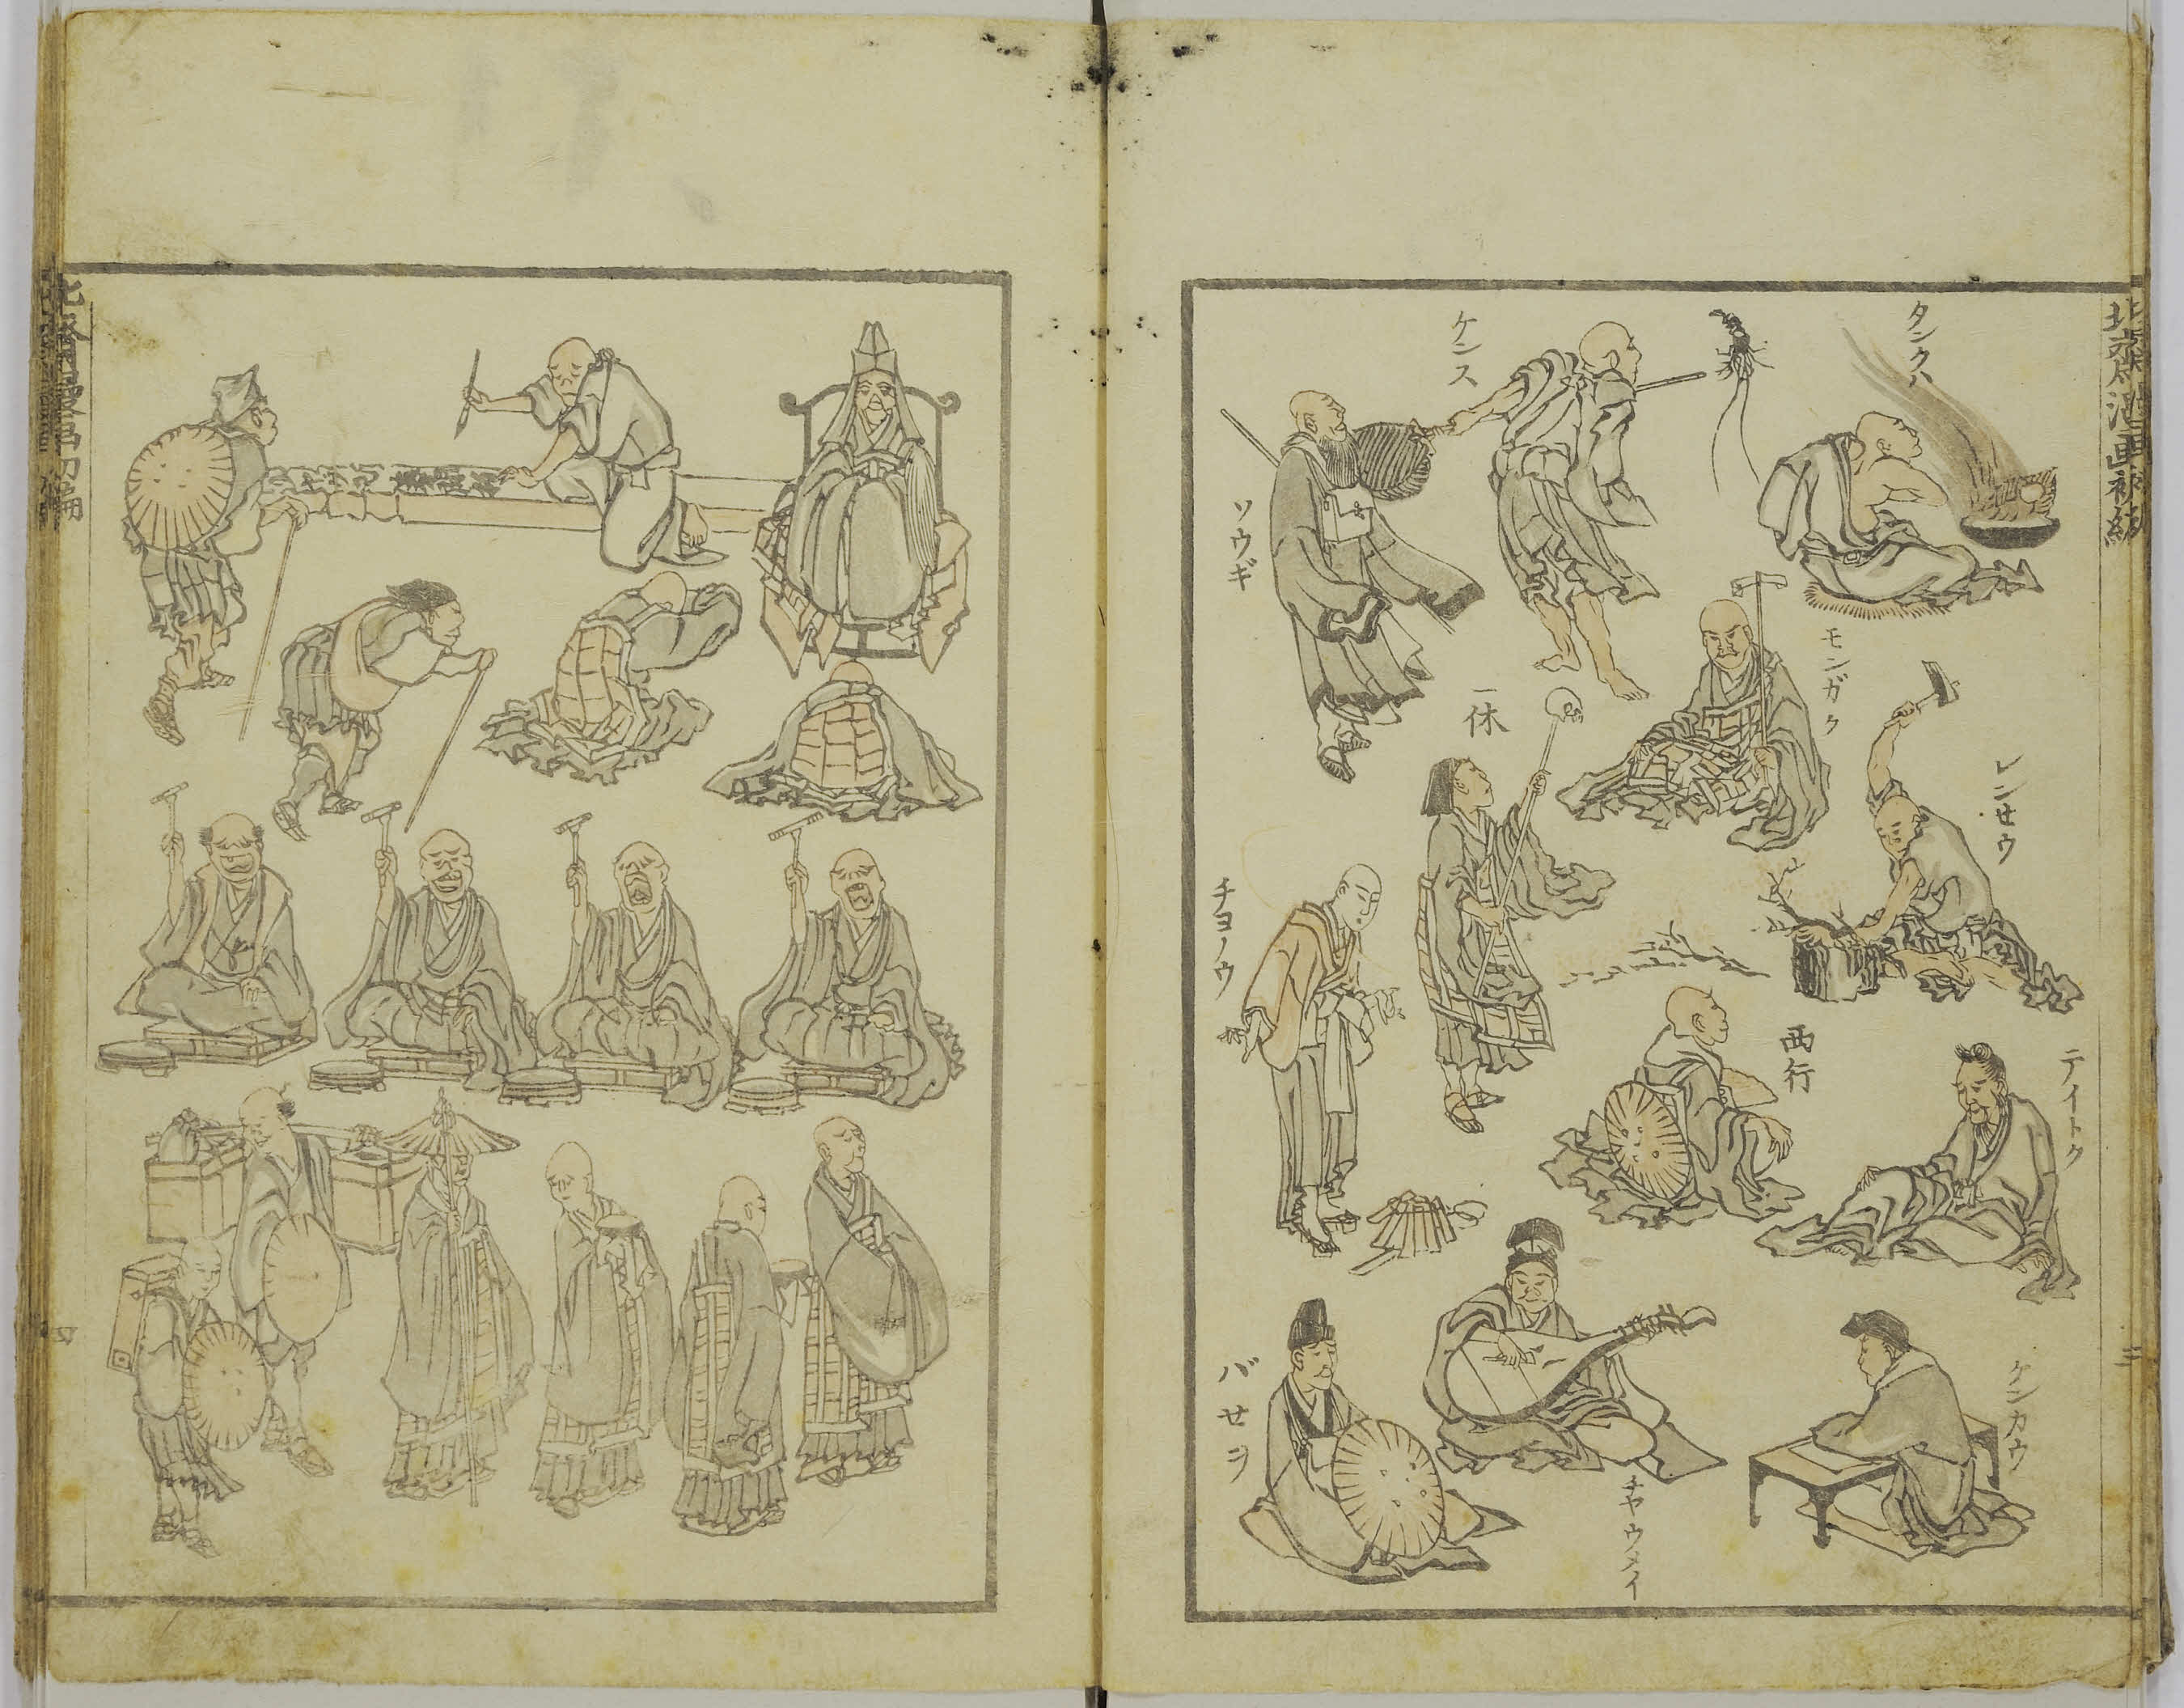 タンクハ
ケンス
ソウギ
モンガク
一休
レンせウ
チヨノウ
西行
テイトク
バせヲ
チヤウメイ
ケンカウ
二
北斎漫画初編